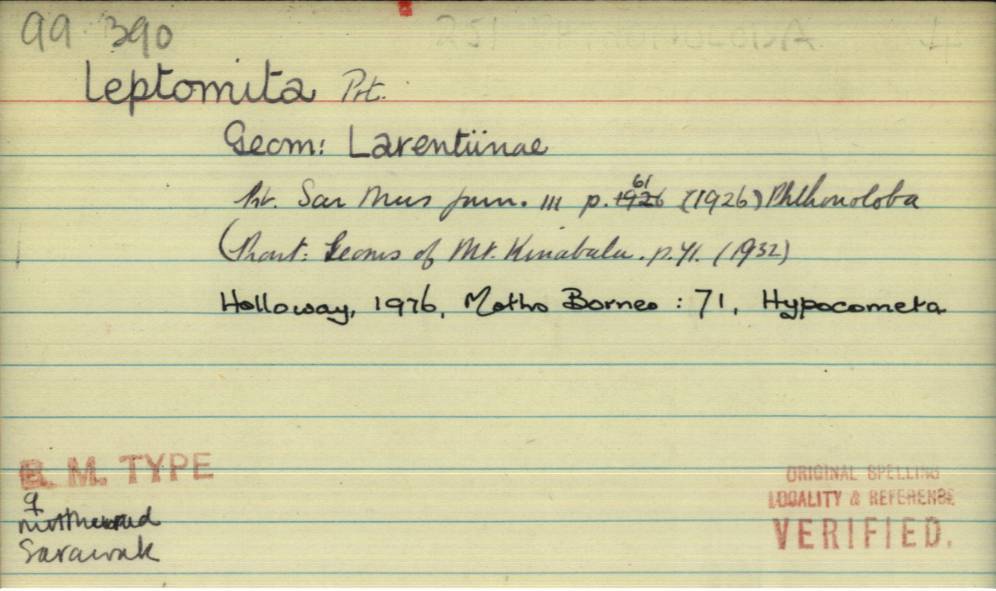 99 390
251 PHTHONOLOBA
leptomita Prt.
Geom: Larentiinae
Prt. Sar Mus Journ. III p. 1926 61 (1926) Phthonoloba
(Prout: Geoms of Mt. Kinabalu. p.71. (1932)
Holloway, 1976, Moths Borneo : 71, Hypocometa
B. M. TYPE
♀
Sarawak
ORIGINAL SPELLING
LOCALITY & REFERENCE
VERIFIED.